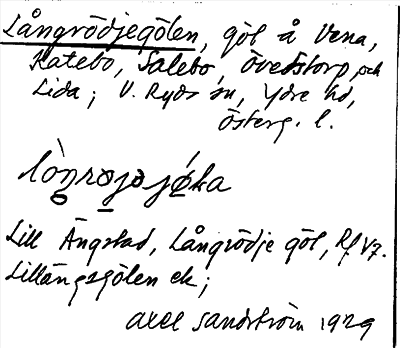 Långrödjegölen, göl å Vena,
Katebo, Salebo, Övedstorp och
Lida; V. Ryds sn, Ydre hd,
Österg. l.
Lill Ängstad, Långrödje göl, Rf V7.
Lillängsgölen ek;
Axel Sandström 1929